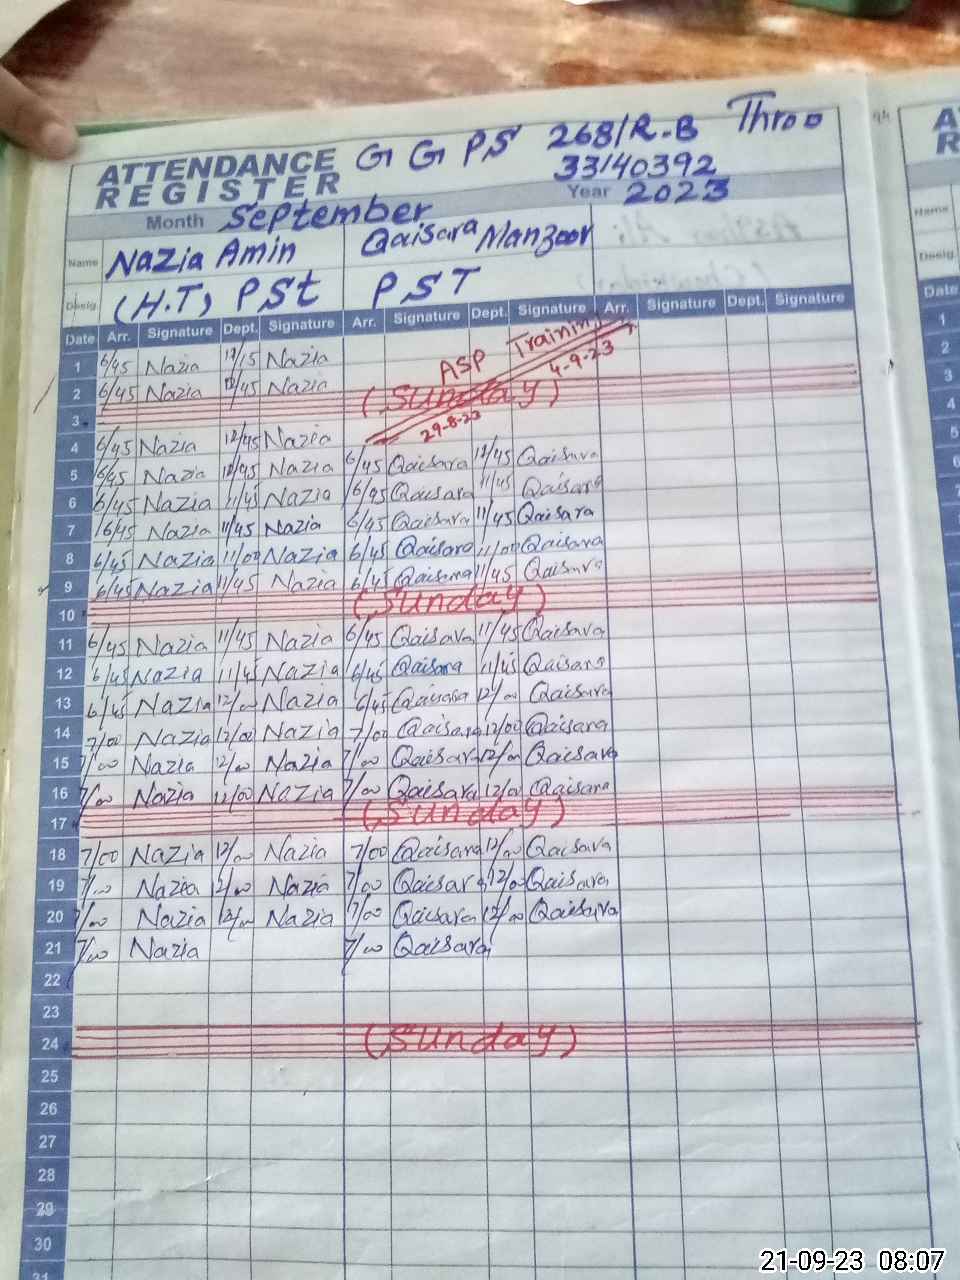 ATTENDANCE REGISTER G G PS 268/R-B Throo
33140392
Month September Year 2023
Name Nazia Amin Qaisara Manzoor
Desig. (H.T) PSt PST
Date Arr. Signature Dept. Signature Arr. Signature Dept. Signature Arr. Signature Dept. Signature
ASP Training
29-8-23 4-9-23
1 6/45 Nazia 12/15 Nazia
2 6/45 Nazia 12/45 Nazia
3 (Sunday)
4 6/45 Nazia 12/45 Nazia
5 6/45 Nazia 12/45 Nazia 6/45 Qaisara 12/45 Qaisara
6 6/45 Nazia 11/45 Nazia 6/45 Qaisara 11/45 Qaisara
7 6/45 Nazia 11/45 Nazia 6/45 Qaisara 11/45 Qaisara
8 6/45 Nazia 11/00 Nazia 6/45 Qaisara 11/00 Qaisara
9 6/45 Nazia 11/45 Nazia 6/45 Qaisara 11/45 Qaisara
10 (Sunday)
11 6/45 Nazia 11/45 Nazia 6/45 Qaisara 11/45 Qaisara
12 6/45 Nazia 11/45 Nazia 6/45 Qaisara 11/45 Qaisara
13 6/45 Nazia 12/00 Nazia 6/45 Qaisara 12/00 Qaisara
14 7/00 Nazia 12/00 Nazia 7/00 Qaisara 12/00 Qaisara
15 7/00 Nazia 12/00 Nazia 7/00 Qaisara 12/00 Qaisara
16 7/00 Nazia 12/00 Nazia 7/00 Qaisara 12/00 Qaisara
17 (Sunday)
18 7/00 Nazia 12/00 Nazia 7/00 Qaisara 12/00 Qaisara
19 7/00 Nazia 12/00 Nazia 7/00 Qaisara 12/00 Qaisara
20 7/00 Nazia 12/00 Nazia 7/00 Qaisara 12/00 Qaisara
21 7/00 Nazia 7/00 Qaisara
22
23
24 (Sunday)
25
26
27
28
29
30
31
Name
Desig.
Date
1
2
3
4
5
6
21-09-23 08:07